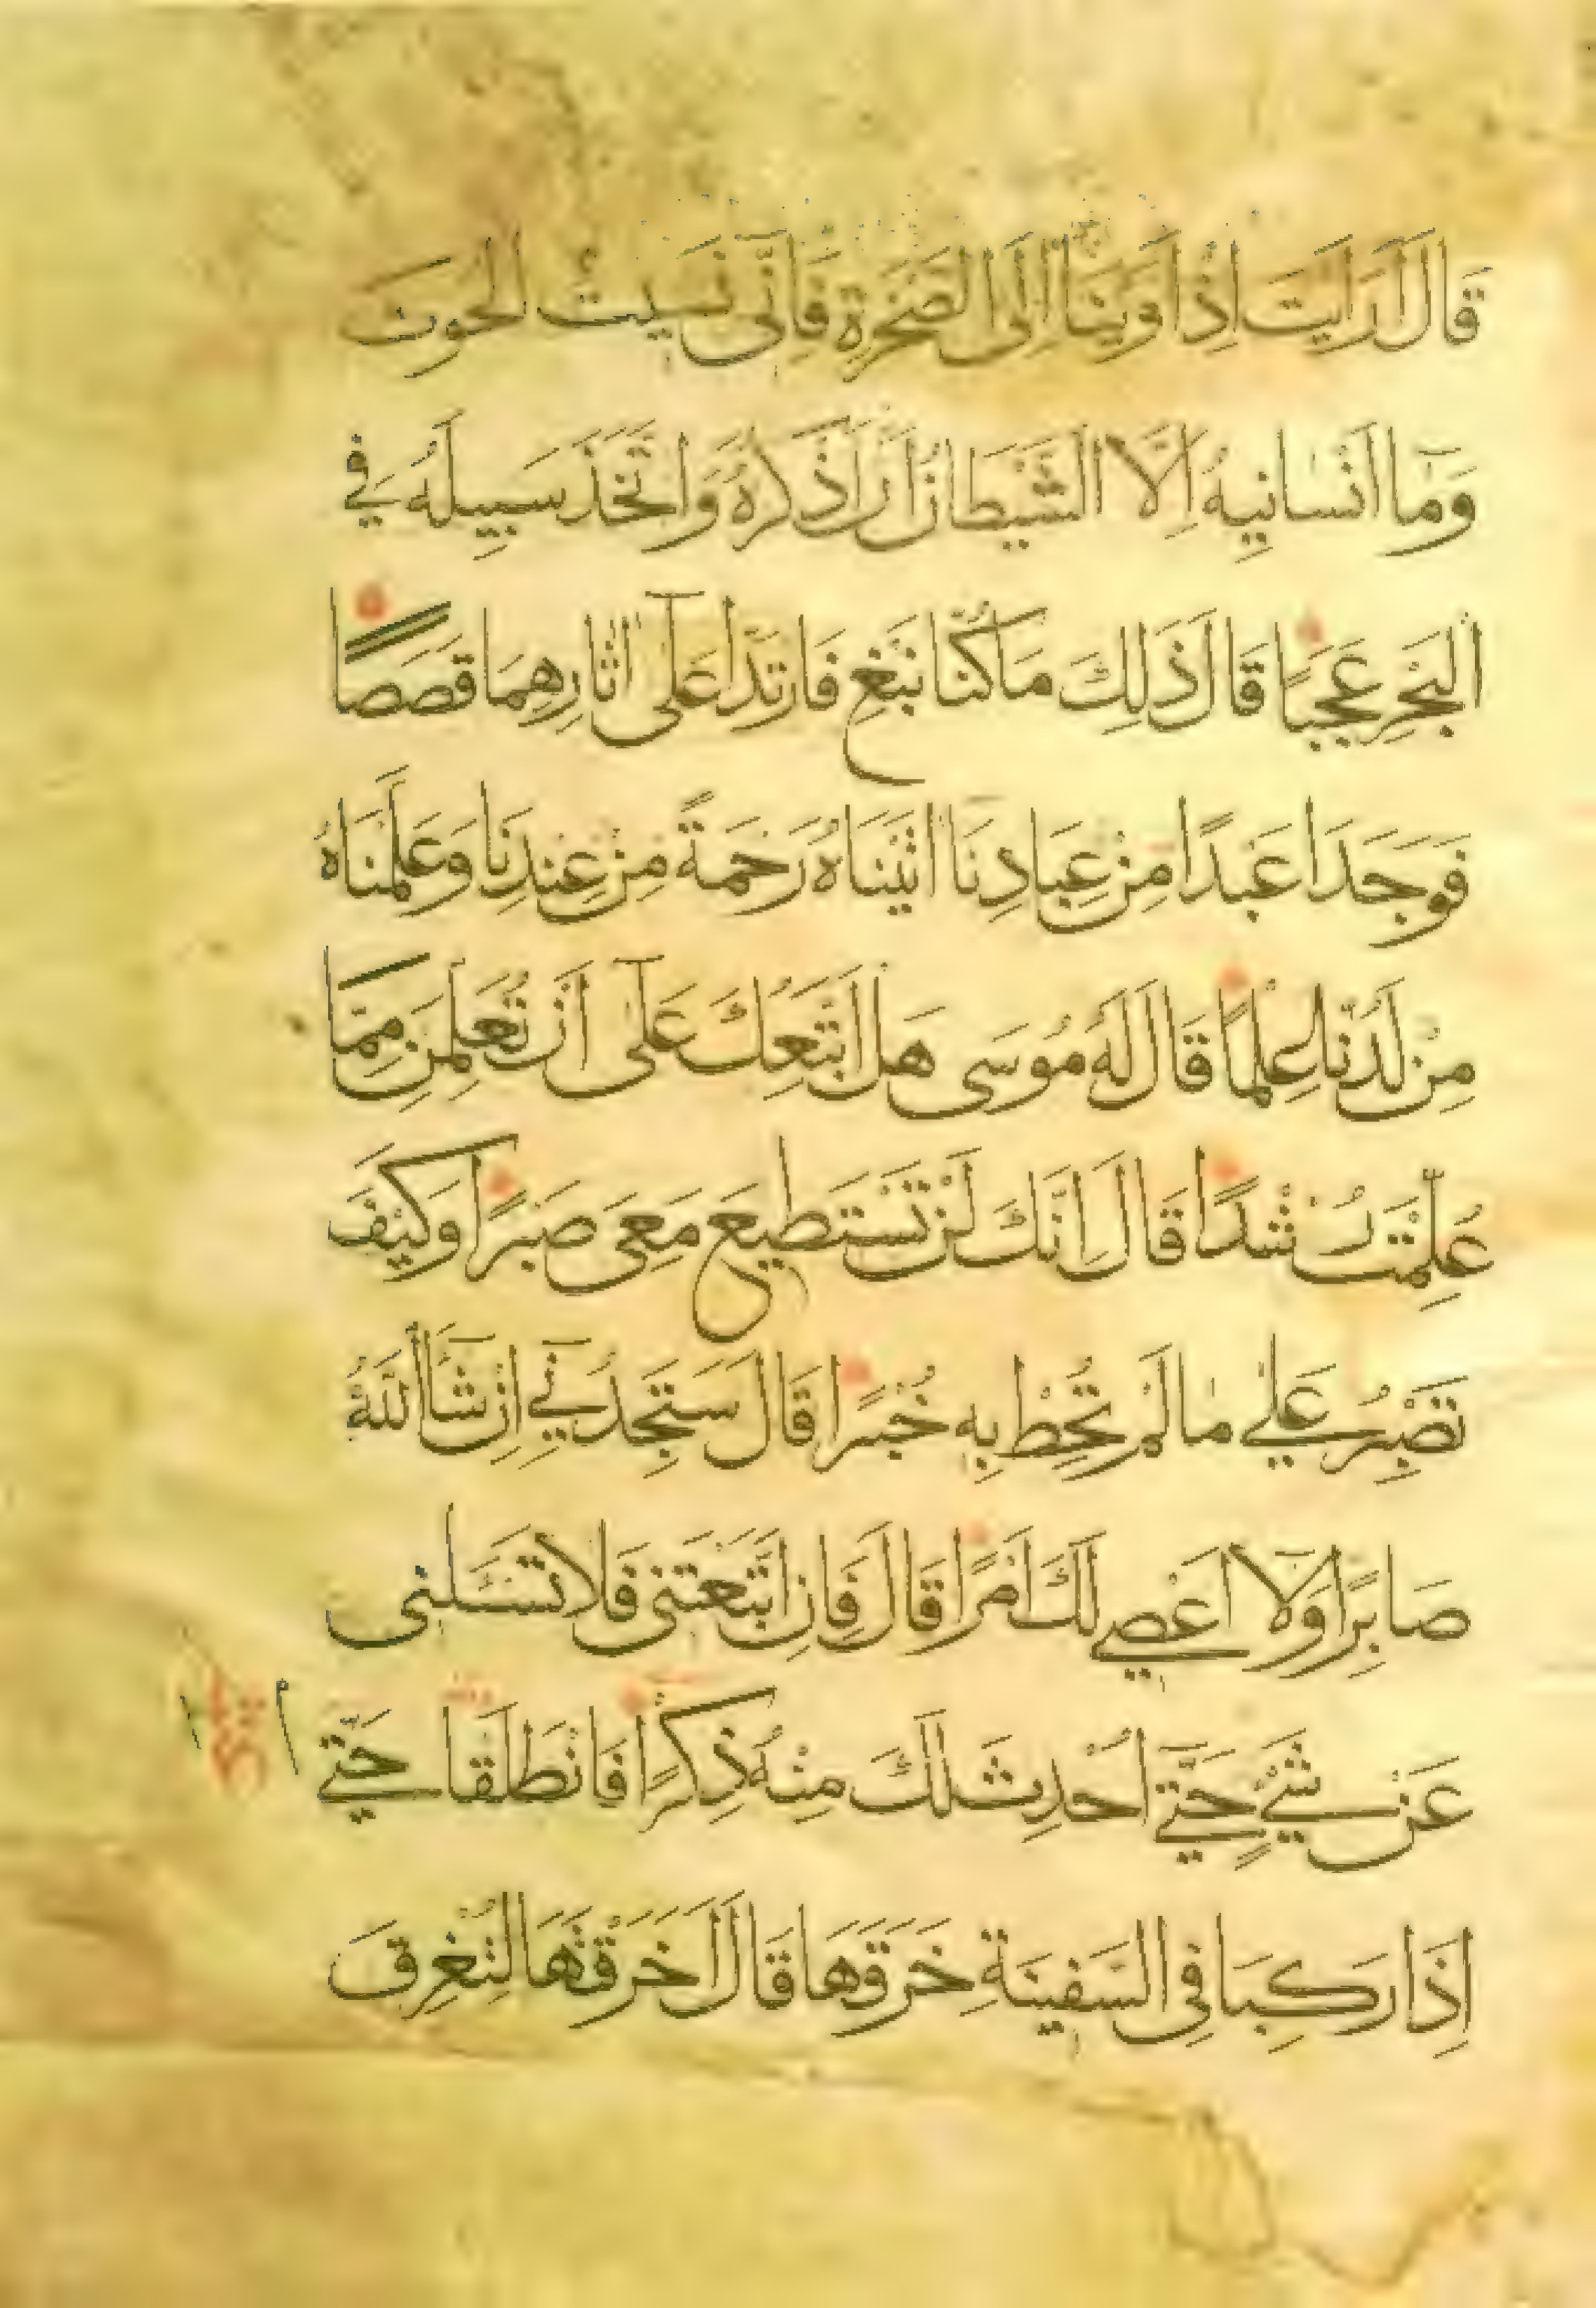 قَالَ اَرَاَيْتَ اِذْ اَوَيْنَا اِلَى الصَّخْرَةِ فَاِنِّى نَسِيتُ الْحُوتَ
وَمَا اَنْسَانِيهُ اِلَّا الشَّيْطَانُ اَنْ اَذْكُرَهُ وَاتَّخَذَ سَبِيلَهُ فِي
الْبَحْرِ عَجَبًا قَالَ ذَلِكَ مَا كُنَّا نَبْغِ فَارْتَدَّا عَلَى اثَارِهِمَا قَصَصًا
فَوَجَدَا عَبْدًا مِنْ عِبَادِنَا اتَيْنَاهُ رَحْمَةً مِنْ عِنْدِنَا وَعَلَّمْنَاهُ
مِنْ لَدُنَّا عِلْمًا قَالَ لَهُ مُوسَى هَلْ اَتَّبِعُكَ عَلَى اَنْ تُعَلِّمَنِ مِمَّا
عُلِّمْتَ رُشْدًا قَالَ اِنَّكَ لَنْ تَسْتَطِيعَ مَعِيَ صَبْرًا وَكَيْفَ
تَصْبِرُ عَلٰي مَا لَمْ تُحِطْ بِهِ خُبْرًا قَالَ سَتَجِدُنِي اِنْ شَآ اللّٰهُ
صَابِرًا وَلَا اَعْصِي لَكَ اَمْرًا قَالَ فَاِنِ اتَّبَعْتَنِى فَلَا تَسْـَٔلْنِى
عَنْ شَيْءٍ حَتَّي اُحْدِثَ لَكَ مِنْهُ ذِكْرًا فَانْطَلَقَا حَتَّي
اِذَا رَكِبَا فِى السَّفِينَةِ خَرَقَهَا قَالَ اَخَرَقْتَهَا لِتُغْرِقَ